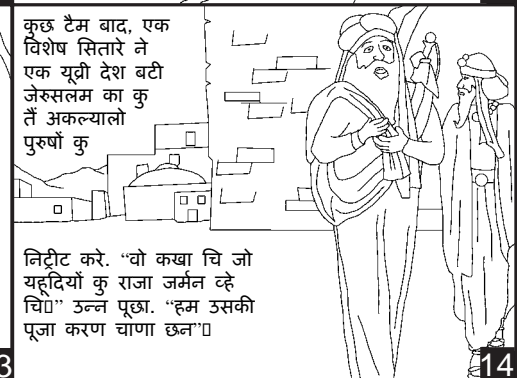 कुछ टैम बाद, एक
विशेष सितारे ने
एक यूव्री देश बटी
जेरुसलम का कु
तैं अकल्यालो
पुरुषों कु
निट्रीट करे. “वो कखा चि जो
यहूदियों कु राजा जर्मन व्हे
चि▯” उन्न पूछा. “हम उसकी
पूजा करण चाणा छन”▯
3
14